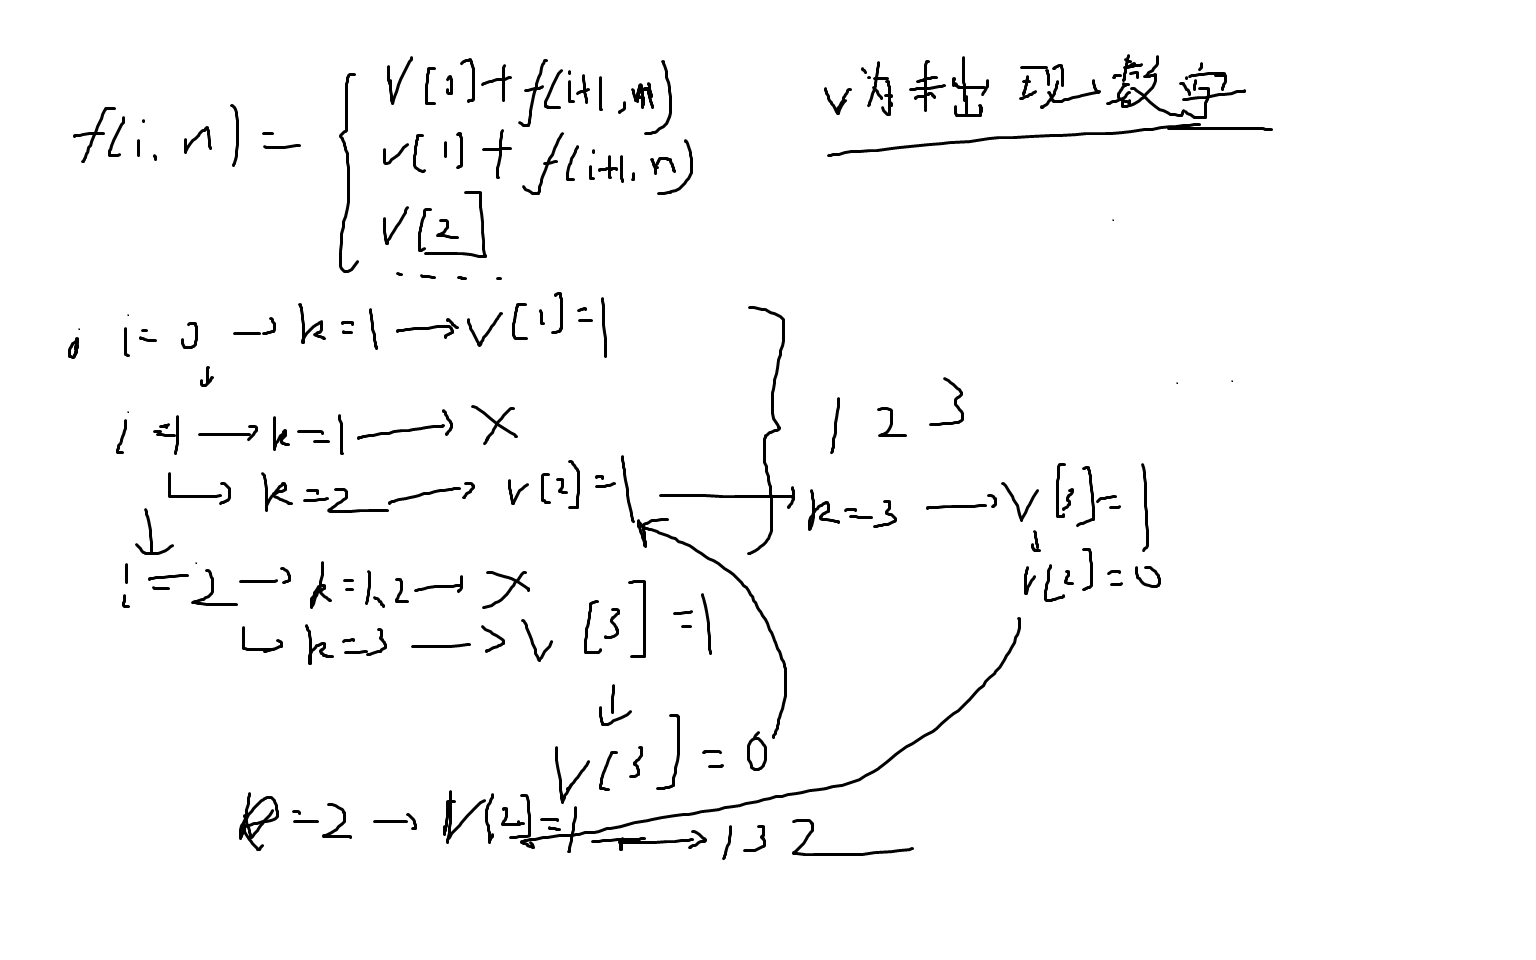 f(i, n) = { v[0] + f(i+1, n)
v[1] + f(i+1, n)
v[2]
....
v为未出现数字
i=0 → k=1 → v[1]=1
↓
i=1 → k=1 → ×
↳ k=2 → v[2]=1 → k=3 → v[3]=1
↓
v[2]=0
} 1 2 3
↓
i=2 → k=1,2 → ×
↳ k=3 → v[3]=1
↓
v[3]=0
k=2 → v[2]=1 → 1 3 2